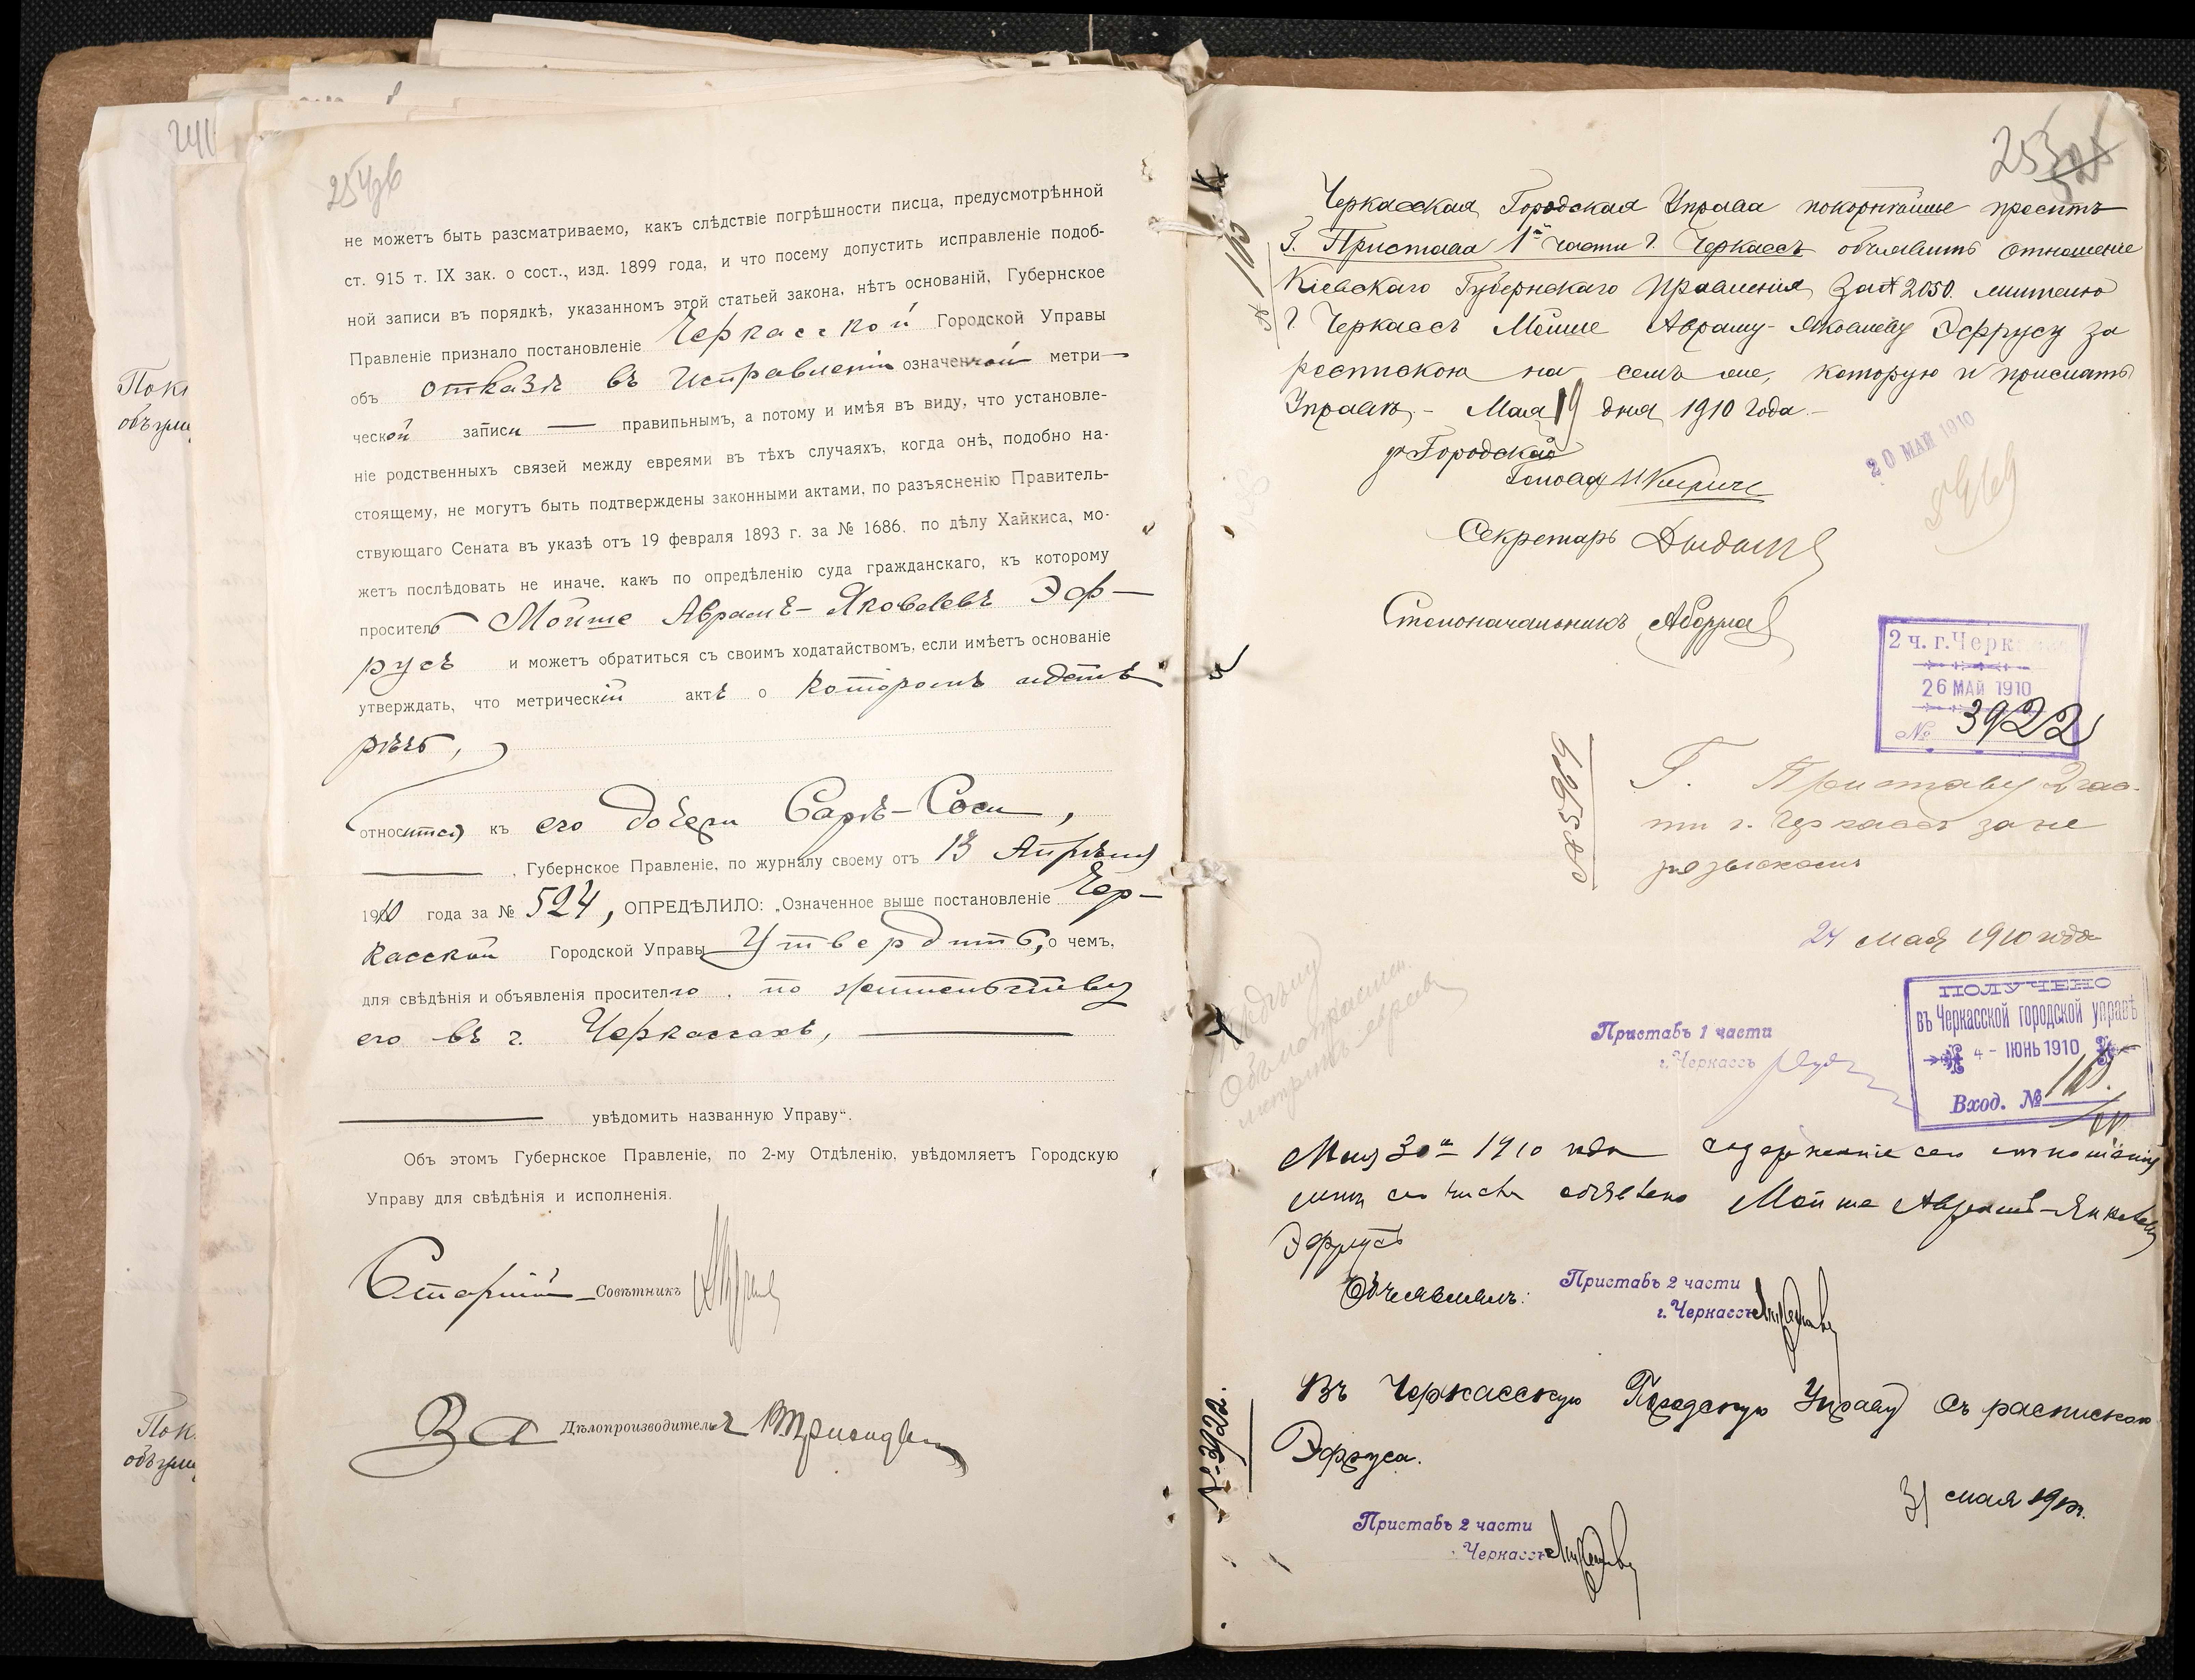 не можетъ быть разсматриваемо, какъ слѣдствіе погрѣшности писца, предусмотрѣнной
ст. 915 т. IX зак. о сост., изд. 1899 года, и что посему допустить исправленіе подоб-
ной записи въ порядкѣ, указанномъ этой статьей закона, нѣтъ основаній, Губернское
Правленіе признало постановленіе Черкасской Городской Управы
объ отказѣ въ исправленіи означенной метри-
ческой записи — правильнымъ, а потому и имѣя въ виду, что установле-
ніе родственныхъ связей между евреями въ тѣхъ случаяхъ, когда онѣ, подобно на-
стоящему, не могутъ быть подтверждены законными актами, по разъясненію Правитель-
ствующаго Сената въ указѣ отъ 19 февраля 1893 г. за № 1686. по дѣлу Хайкиса, мо-
жетъ послѣдовать не иначе. какъ по опредѣленію суда гражданскаго, къ которому
проситель Мойше Аврамъ-Яковлевъ Эф-
русъ и можетъ обратиться съ своимъ ходатайствомъ, если имѣетъ основаніе
утверждать, что метрическій актъ о которомъ идетъ
рѣчь,
относится къ его дочери Сарѣ-Соси,
— , Губернское Правленіе, по журналу своему отъ 13 Апрѣля
1910 года за № 524, ОПРЕДѢЛИЛО: „Означенное выше постановленіе Чер-
касской Городской Управы утвердить, о чемъ,
для свѣдѣнія и объявленія просителю, по жительству
его въ г. Черкассахъ, —
— увѣдомить названную Управу“.
Объ этомъ Губернское Правленіе, по 2-му Отдѣленію, увѣдомляетъ Городскую
Управу для свѣдѣнія и исполненія.
Старшій Совѣтникъ
За Дѣлопроизводителя
253
Черкасская Городская Управа покорнѣйше проситъ
Г. Пристава 1й части г. Черкассъ объявить отношеніе
Кіевскаго Губернскаго Правленія за № 2050. жителю
г. Черкассъ Мойше Авраму-Яковлеву Эфрусу за
роспискою на семъ же, которую и прислать
Управѣ. - Мая 19 дня 1910 года. -
Городской
Голова
20 МАЙ 1910
Секретарь
Столоначальникъ
2 ч. г. Черк
26 МАЙ 1910
№ 3922
№ 5969
Г. Приставу 2 час-
ти г. Черкассъ за не
розыскомъ
24 мая 1910 года
Приставъ 1 части
г. Черкассъ
ПОЛУЧЕНО
въ Черкасской городской управѣ
4 - ІЮНЬ 1910
Вход. №
Мая 30го 1910 года содержаніе сего отношенія
объявлено Мойше Аврамъ-Янкелеву
Эфрусъ
Объявилъ: Приставъ 2 части
г. Черкассъ
№ 3922.
Въ Черкасскую Городскую Управу съ роспискою
Эфруса.
31 мая 1910 г.
Приставъ 2 части
г. Черкассъ